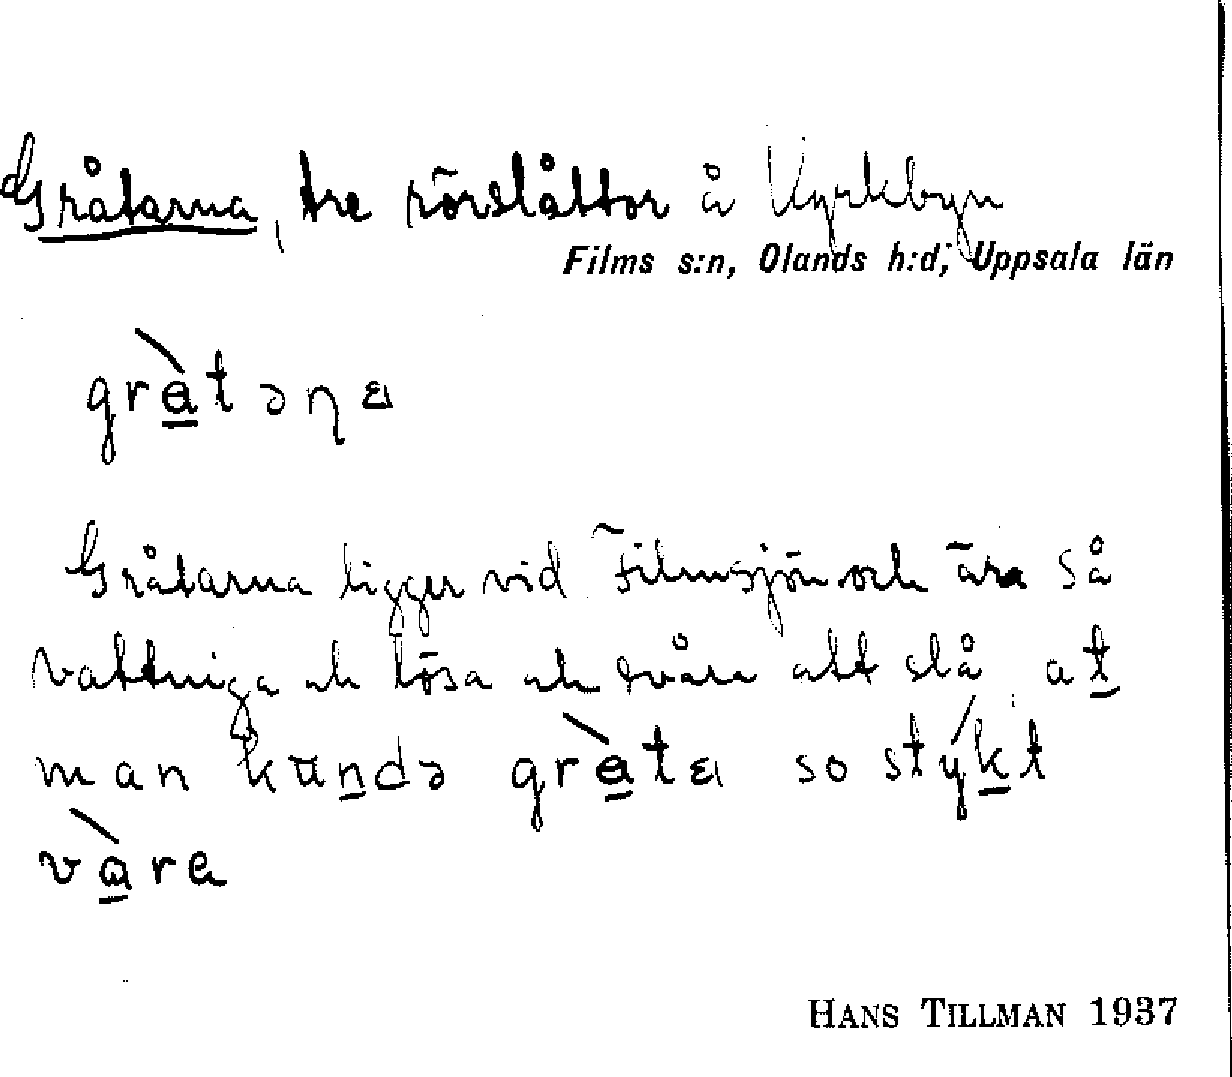 Gråtarna, tre rörslåttor å Kyrkbyn
Films s:n, Olands h:d, Uppsala län
gràtəṇa
Gråtarna ligger vid Filmsjön och ära så
vattniga och lösa och svåra att slå at
man kundə gràta so stýkt
vàra
HANS TILLMAN 1937